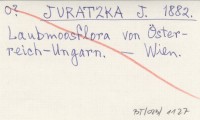 o? JURATZKA J. 1882.
Laubmoosflora von Öster-
reich-Ungarn. — Wien.
BT/073/1127